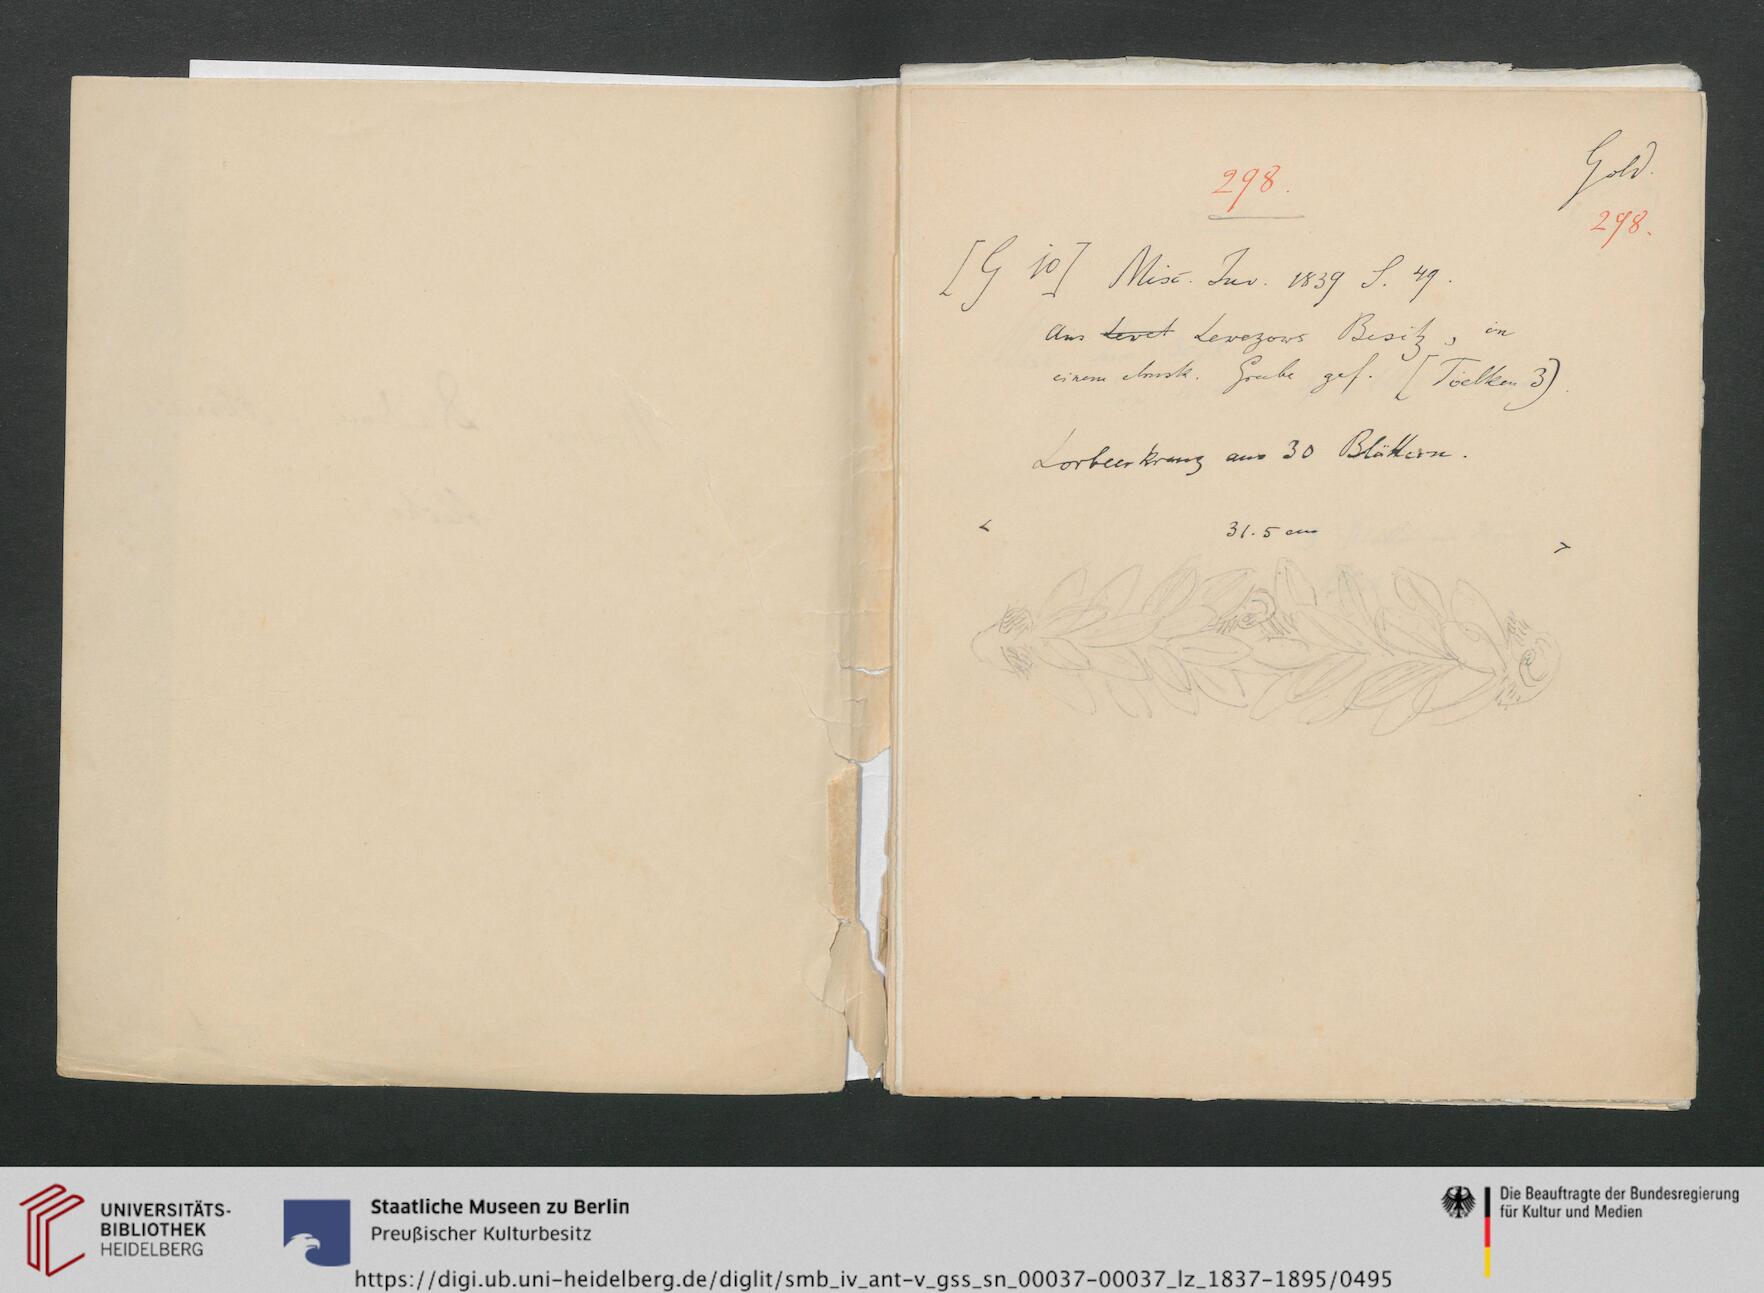 Gold.
298.
298.
[G 10] Misc. Inv. 1839 S. 49.
aus Levet Levezows Besitz, in
einem etrusk. Grabe gef. [Toelken 3].
Lorbeerkranz aus 30 Blättern.
< 31.5 cm >
UNIVERSITÄTS-
BIBLIOTHEK
HEIDELBERG
Staatliche Museen zu Berlin
Preußischer Kulturbesitz
Die Beauftragte der Bundesregierung
für Kultur und Medien
https://digi.ub.uni-heidelberg.de/diglit/smb_iv_ant-v_gss_sn_00037-00037_lz_1837-1895/0495